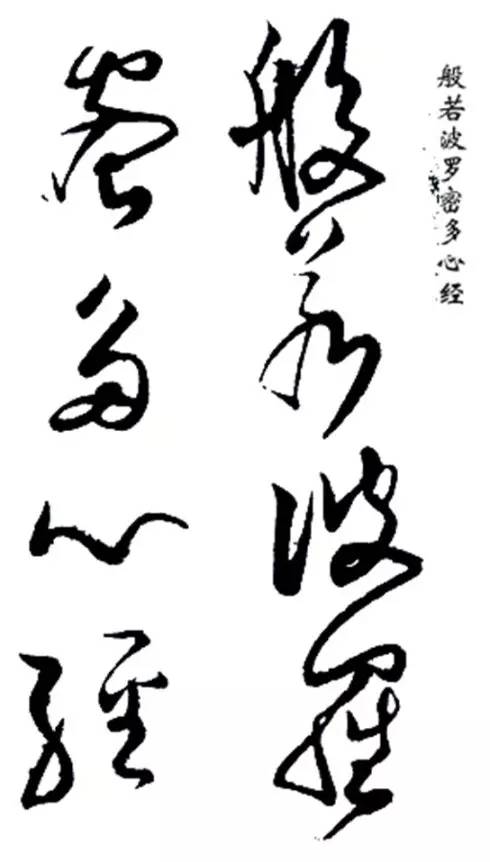 般若波罗密多心经
般若波羅
蜜多心經